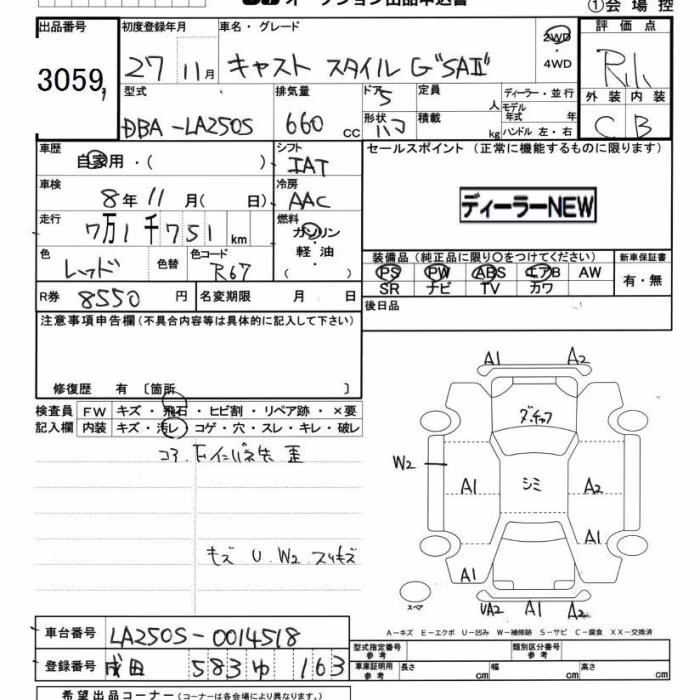 オークション出品申込書
①会場控
出品番号 初度登録年月 車名・グレード 評価点
3059 27 11月 キャスト スタイル G"SAⅡ" 2WD・4WD R1
型式 排気量 ドア 5 定員 人 ディーラー・並行 外装 内装
DBA-LA250S 660 cc 形状 ハコ 積載 kg モデル年式 年 ハンドル 左・右 C B
車歴 自家用・( ) シフト IAT セールスポイント (正常に機能するものに限ります)
車検 8年 11月( 日) 冷房 AAC ディーラーNEW
走行 7万1千751 km 燃料 ガソリン・軽油 ( )
色 レッド 色替 色コード R67 装備品(純正品に限り○をつけてください) 新車保証書
PS PW ABS エアB AW 有・無
SR ナビ TV カワ
R券 8550円 名変期限 月 日 後日品
注意事項申告欄(不具合内容等は具体的に記入して下さい)
修復歴 有 〔箇所 〕
検査員 FW キズ・飛石・ヒビ割・リペア跡・×要
記入欄 内装 キズ・汚レ・コゲ・穴・スレ・キレ・破レ
キズ U W2 スリキズ
A1 A2
W2
A1 シミ A2
A1
A1
スペア UA2 A1 A2
A-キズ E-エクボ U-凹み W-補修跡 S-サビ C-腐食 XX-交換済
車台番号 LA250S-0014518 型式指定番号 参考 類別区分番号 参考
登録番号 成田 583 ゆ 163 車庫証明用 参考 長さ cm 幅 cm 高さ cm
希望出品コーナー(コーナーは各会場により異なります。)